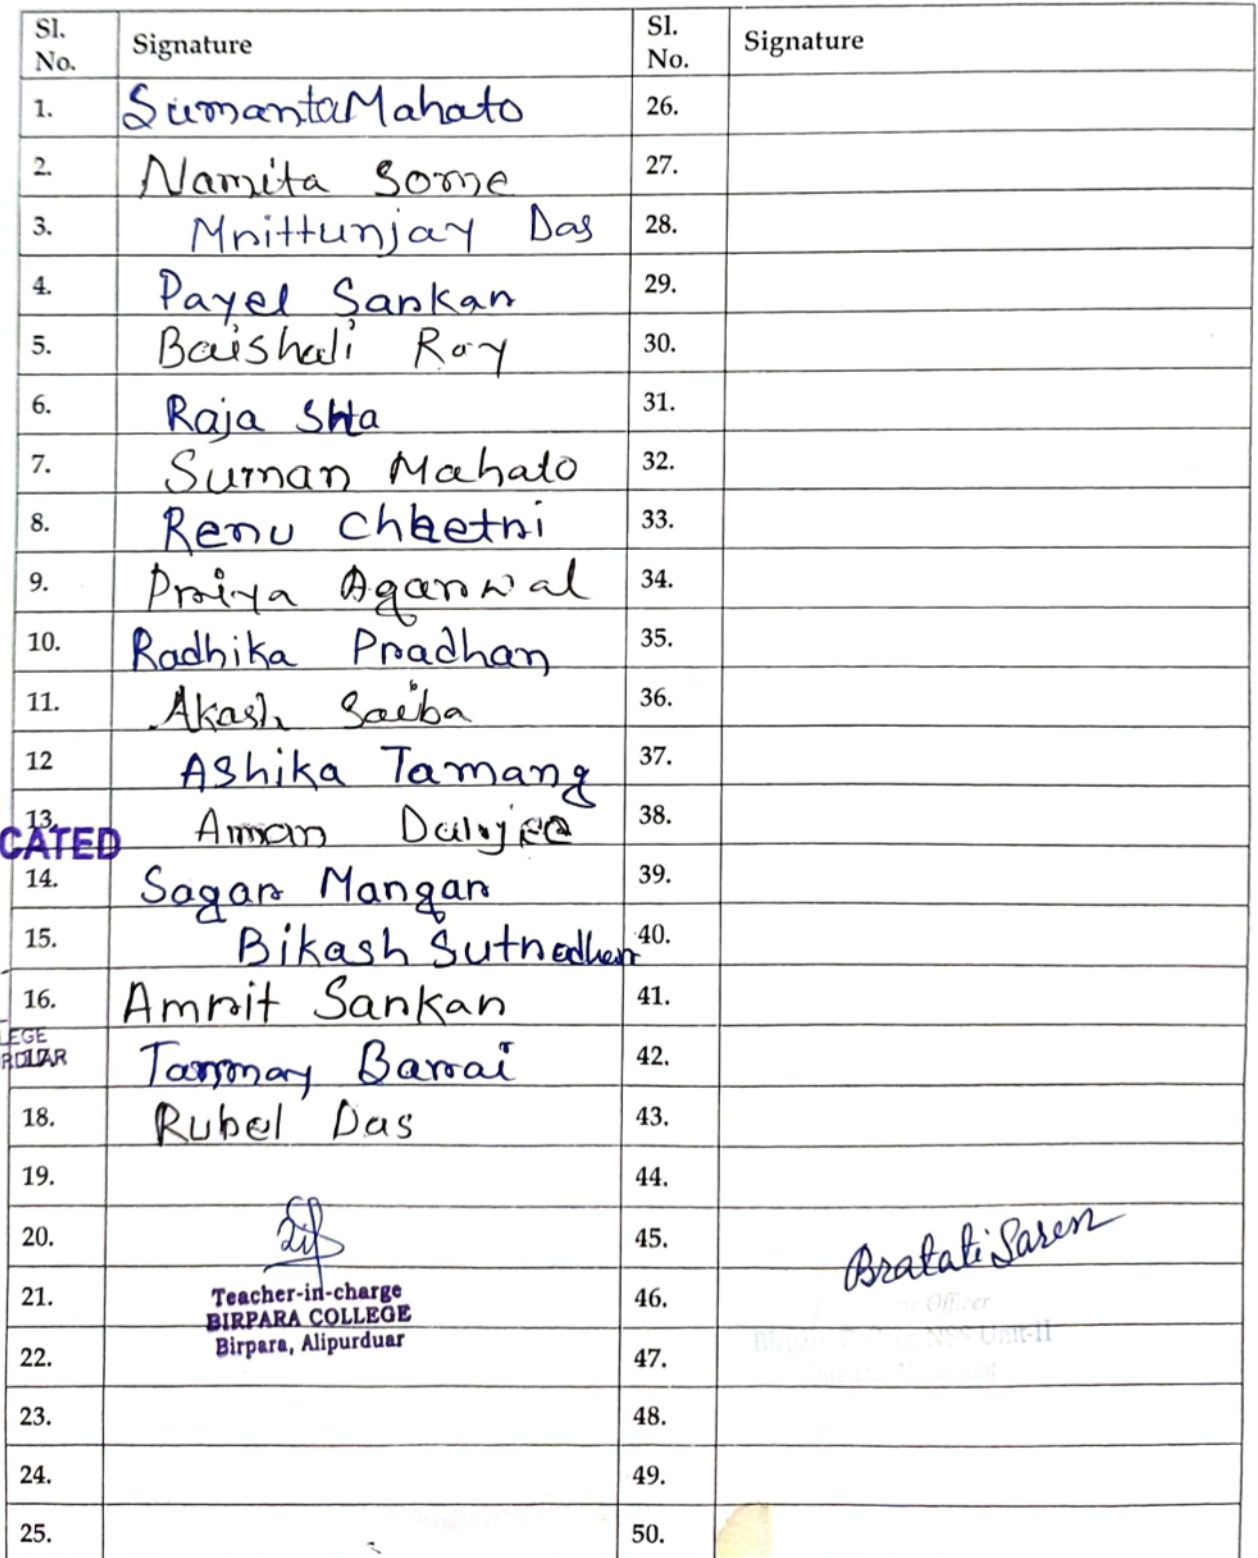 Sl. No. Signature Sl. No. Signature
1. Sumanta Mahato 26.
2. Namita Some 27.
3. Mrittunjay Das 28.
4. Payel Sarkar 29.
5. Baishali Roy 30.
6. Raja Sha 31.
7. Suman Mahato 32.
8. Renu Chhetri 33.
9. Priya Agarwal 34.
10. Radhika Pradhan 35.
11. Akash Saiba 36.
12 Ashika Tamang 37.
13. Aman 38.
CATED
14. Sagar Mangar 39.
15. Bikash Sutradhar 40.
16. Amrit Sarkar 41.
LEGE
17. Tanmay Barai 42.
18. Rubel Das 43.
19. 44.
20. 45. Bratati Saren
21. Teacher-in-charge 46. Officer
BIRPARA COLLEGE
22. Birpara, Alipurduar 47. NSS Unit-II
23. 48.
24. 49.
25. 50.